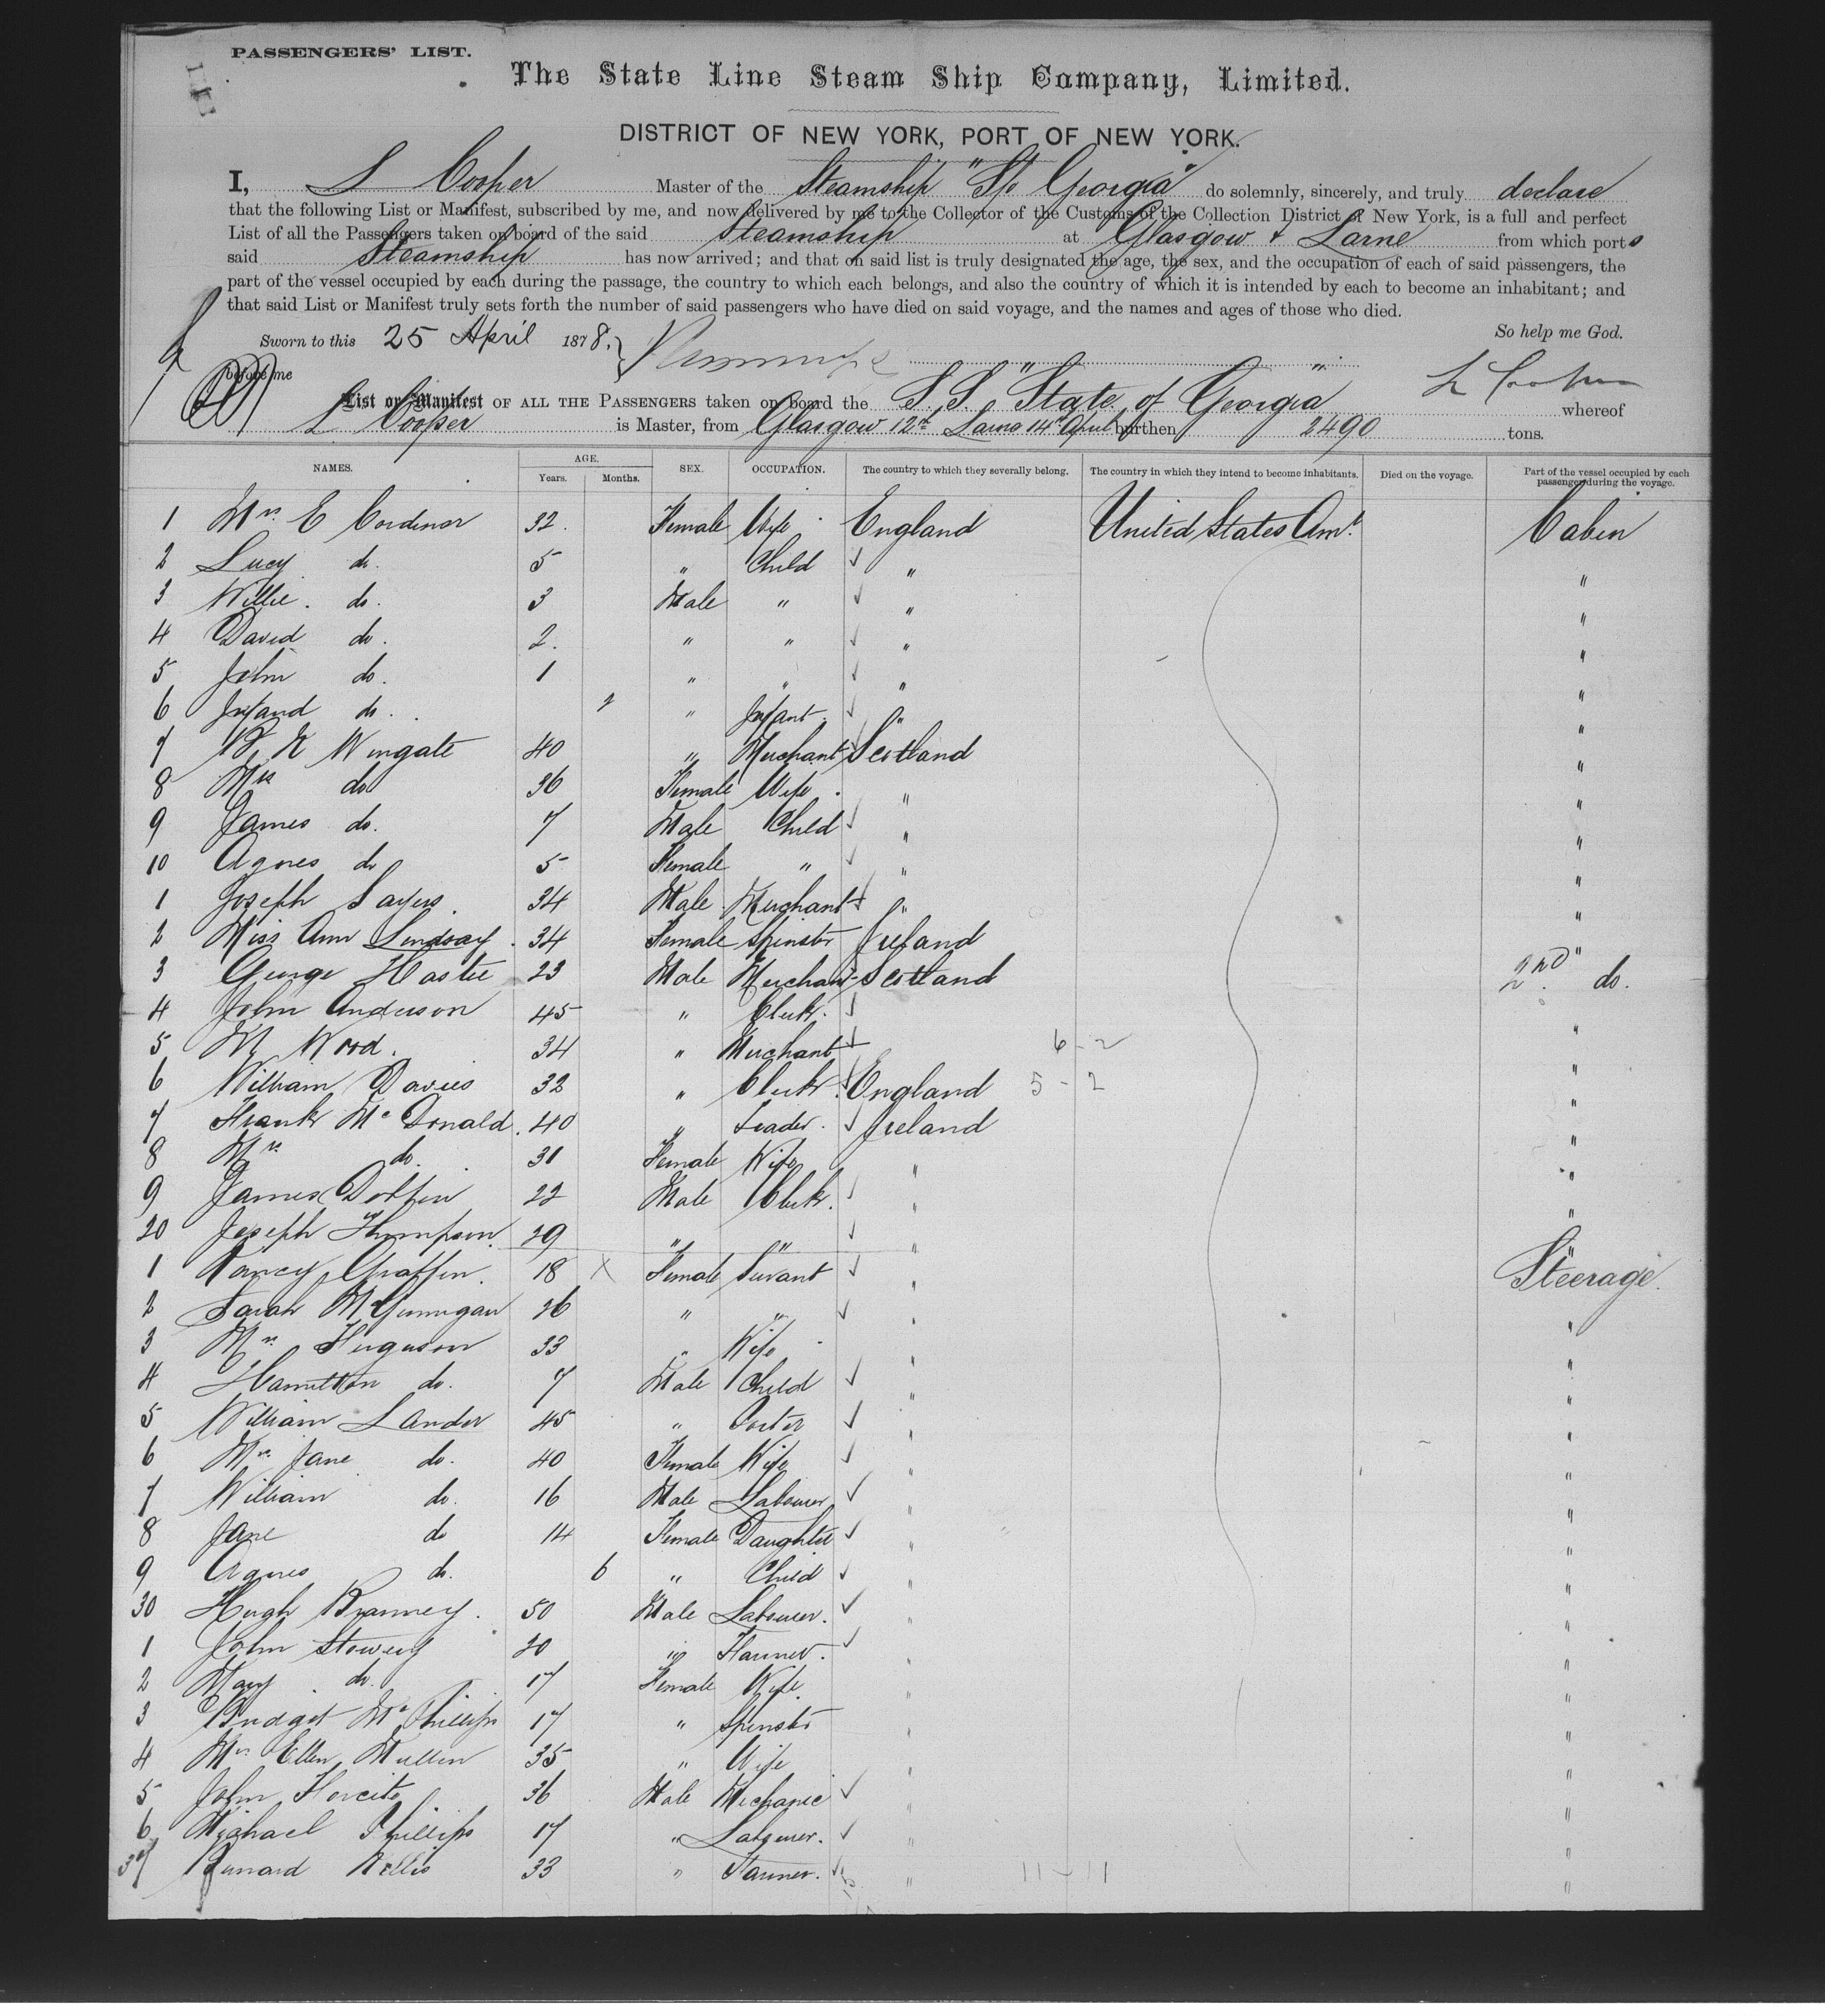 PASSENGERS' LIST.
The State Line Steam Ship Company, Limited.
DISTRICT OF NEW YORK, PORT OF NEW YORK.
I, L Cooper Master of the Steamship "S/o Georgia" do solemnly, sincerely, and truly declare
that the following List or Manifest, subscribed by me, and now delivered by me to the Collector of the Customs of the Collection District of New York, is a full and perfect
List of all the Passengers taken on board of the said Steamship at Glasgow & Larne from which ports
said Steamship has now arrived; and that on said list is truly designated the age, the sex, and the occupation of each of said passengers, the
part of the vessel occupied by each during the passage, the country to which each belongs, and also the country of which it is intended by each to become an inhabitant; and
that said List or Manifest truly sets forth the number of said passengers who have died on said voyage, and the names and ages of those who died.
So help me God.
Sworn to this 25 April 1878.
before me
L Cooper
List or Manifest OF ALL THE PASSENGERS taken on board the S.S. "State of Georgia" whereof
L Cooper is Master, from Glasgow 12th Larne 14th April burthen 2490 tons.
NAMES. AGE. SEX. OCCUPATION. The country to which they severally belong. The country in which they intend to become inhabitants. Died on the voyage. Part of the vessel occupied by each passenger during the voyage.
Years. Months.
1 Mrs E Cordinor 32. Female Wife England United States Am. Cabin
2 Lucy do. 5 " Child " "
3 Willie do. 3 Male " " "
4 David do. 2. " " " "
5 John do. 1 " " " "
6 Infand do. 2 " Infant " "
7 Wingate 40 " Merchant Scotland "
8 Mrs do 36 Female Wife " "
9 James do. 7 Male Child " "
10 Agnes do 5 Female " " "
1 Joseph Sayers 34 Male Merchant " "
2 Miss Ann Lindsay 34 Female Spinster Ireland "
3 George Hastie 23 Male Merchant Scotland 2nd do.
4 John Anderson 45 " Clerk "
5 M Wood 34 " Merchant 6-2 "
6 William Davies 32 " Clerk England 5-2 "
7 Frank McDonald 40 " Trader Ireland "
8 Mrs do. 31 Female Wife " "
9 James Dolfin 22 Male Clerk. " "
20 Joseph Thompson 29 " " " "
1 Nancy Graffin 18 X Female Servant " Steerage
2 Sarah McGunnigan 26 " " " "
3 Mrs Ferguson 33 " Wife " "
4 Hamilton do. 7 Male Child " "
5 William Lander 45 " Porter " "
6 Mrs Jane do. 40 Female Wife " "
7 William do. 16 Male Labourer " "
8 Jane do 14 Female Daughter " "
9 Agnes do. 6 " Child " "
30 Hugh Branney 50 Male Labourer. " "
1 John Stowery 20 " Farmer. " "
2 Mary do. 17 Female Wife " "
3 Bridget McPhillips 17 " Spinster " "
4 Mrs Ellen Mullin 35 " Wife " "
5 John 36 Male Mechanic " "
6 Michael Phillips 17 " Labourer. " "
37 Bernard Nellis 33 " Farmer. " 11-11 "